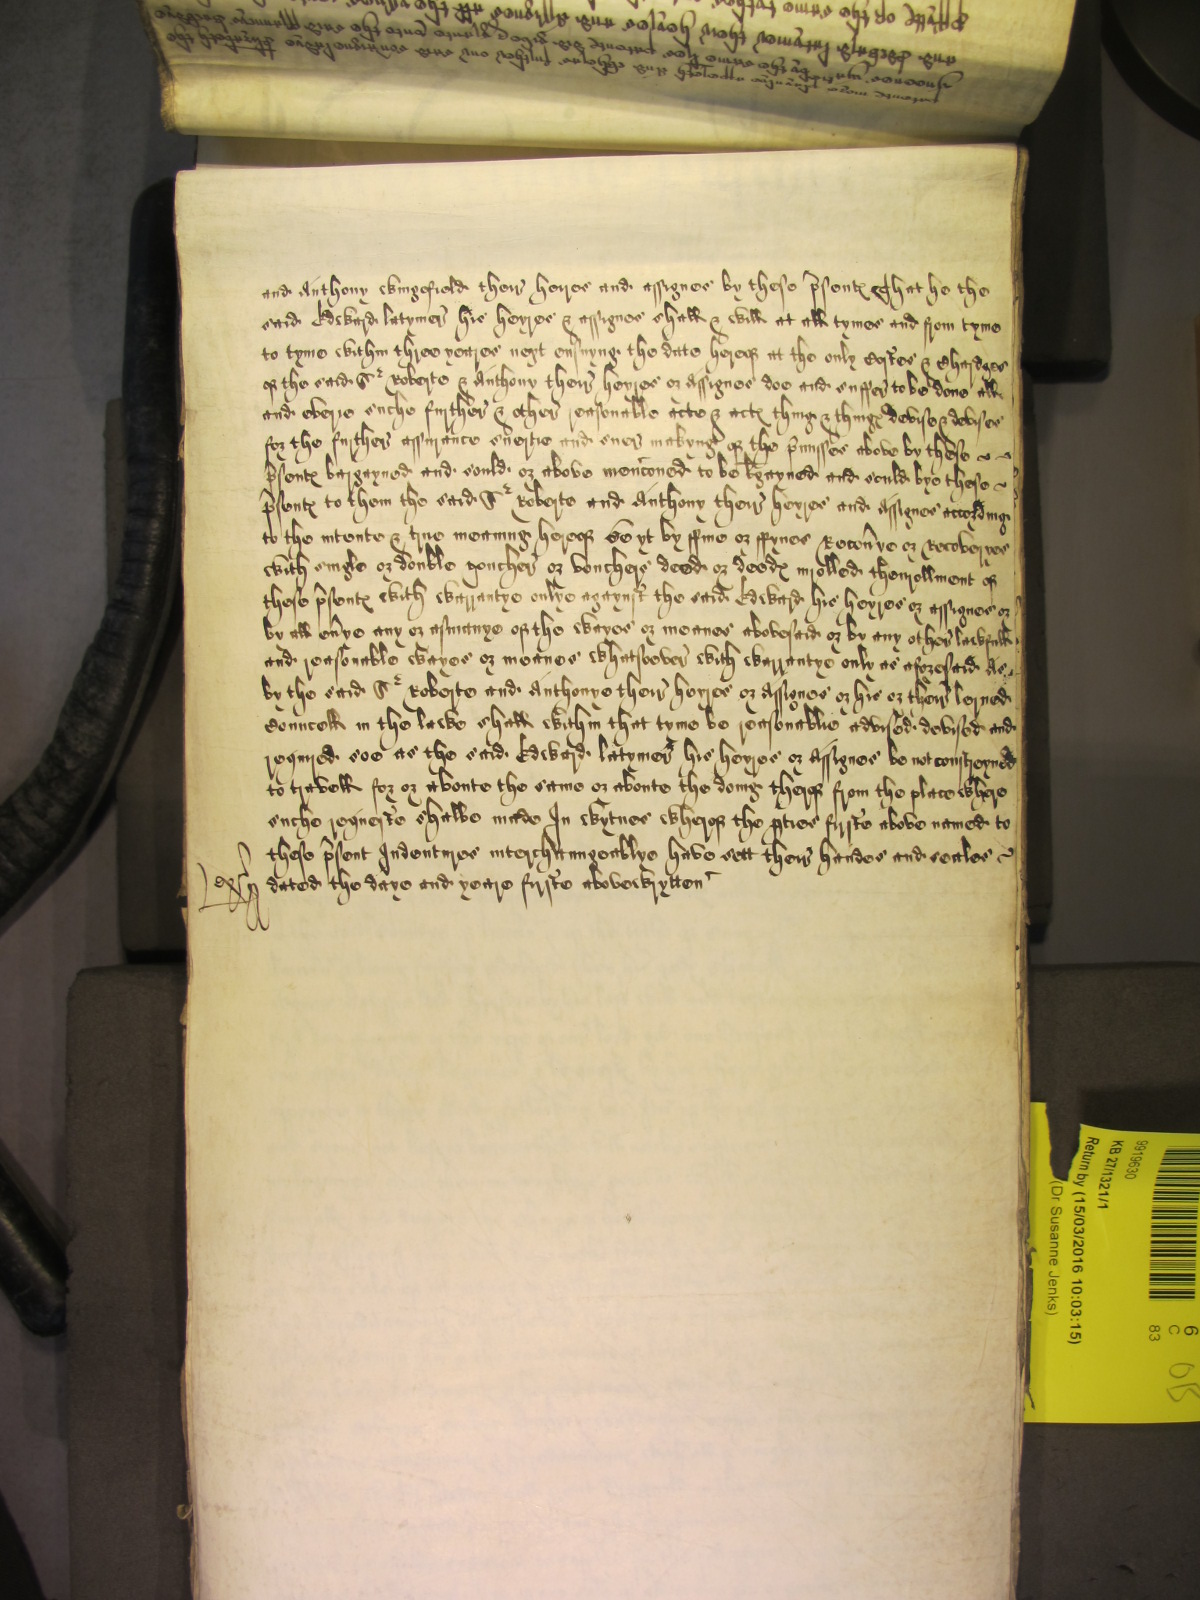 and Anthony Wingefield their heires and assignes by these p̃sentꝭ That he the
said Edward Latymer his heyres & assignes shall & will at all tymes and from tyme
to tyme within three yeares next ensuyng the date hereof at the only costes & chardges
of the said Sr Roberte & Anthony their heyres or Assignes doe and suffer to be done all
and everie suche further & other reasonable acte & actꝭ thing & thingꝭ devise & devises
for the further assurance suertie and suer makyng of the p̃misses above by these
p̃sentꝭ bargayned and sould or above menc̃oned to be b̃gayned and sould bye these
p̃sentꝭ to them the said Sr Roberte and Anthony their heyres and Assignes according
to the intente & true meaning hereof Be yt by ffine or ffynes Recou̾ye or Recoveryes
with single or double voucher or vouchers deed or deedꝭ inrolled thenrollment of
these p̃sentꝭ with warrantye onlye agaynst the said Edward his heyres or assignes or
by all eu̾ye any or asmanye of the wayes or meanes abovesaid or by any other lawfull
and reasonable wayes or meanes whatsoever with warrantye only as aforesaid As
by the said Sr Roberte and Anthonye their heyres or Assignes or his or their lerned
Councell in the lawe shall within that tyme be reasonablie advised devised and
required soe as the said Edward Latymer his heyres or Assignes be not constreyned
to travell for or aboute the same or aboute the doing therof from the place where
suche requeste shalbe made In wytnes wherof the ꝑties firste above named to
these p̃sent Indentures interchaungeablye have sett their handes and seales
dated the daye and yeare firste abovewrytten
9919630
KB 27/1321/1
Return by (15/03/2016 10:03:15)
(Dr Susanne Jenks)
6
C
83